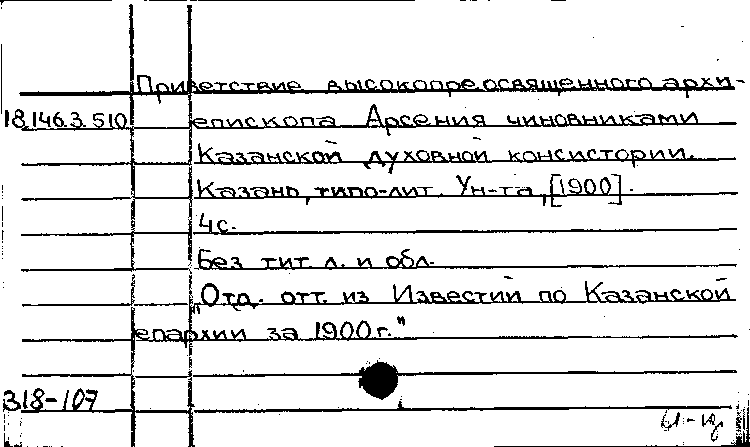 Приветствие высокопреосвященного архи-
18.146.3.510 епископа Арсения чиновниками
Казанской духовной консистории.
Казань, типо-лит. Ун-та, [1900].
4с.
Без тит. л. и обл.
"Отд. отт. из Известий по Казанской
епархии за 1900г."
318-107